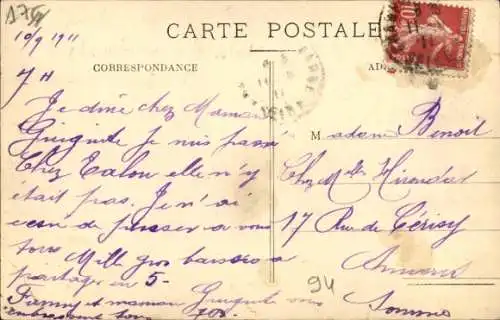 175
CARTE POSTALE
10/9 1911
CORRESPONDANCE
AD
7 H
Je dine chez Maman
Guiguite je suis passé
Chez Talon elle n'y
était pas. Je n'ai
de passer a vous
tous Mille gros baisers a
partager en 5-
Fanny et maman Guiguite vous
embrassent tous
Madame Benoit
Chez Mlle Hirondar
17 Rue de Cérisy
Amiens
Somme
94